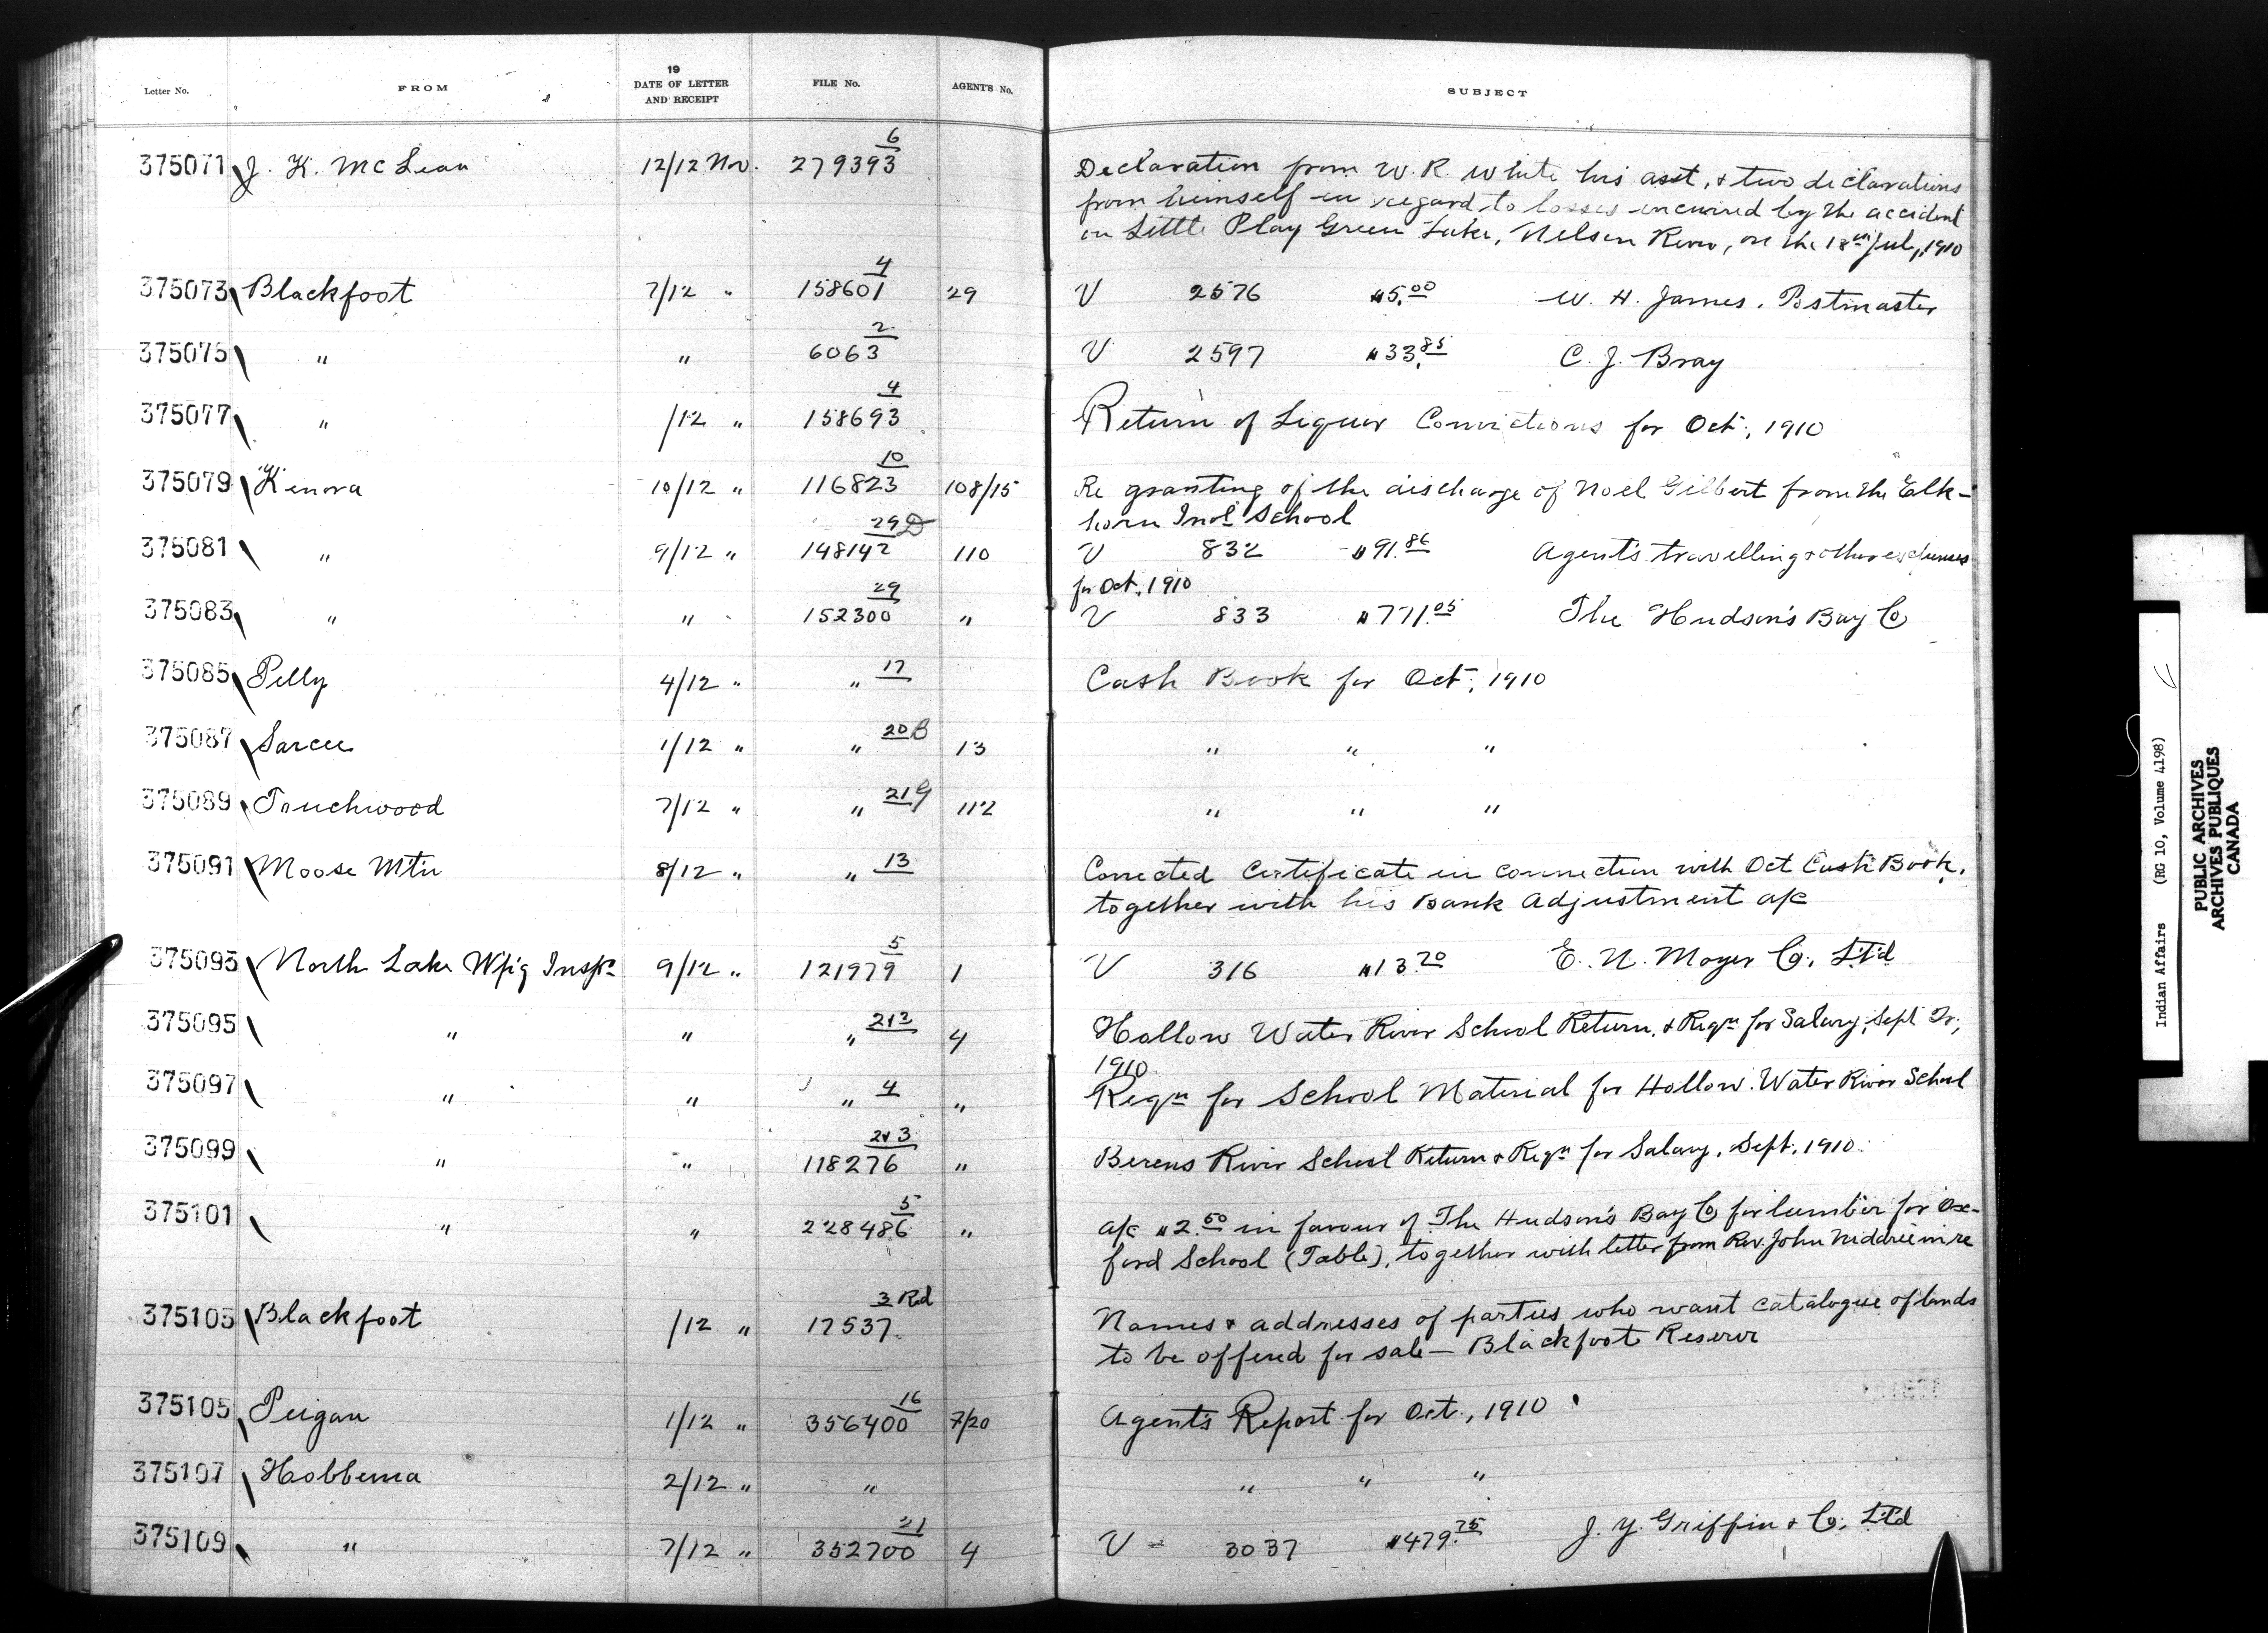 Letter No. FROM 19 DATE OF LETTER AND RECEIPT FILE No. AGENT'S No. SUBJECT
375071 J. K. McLean 12/12 Nov. 279393 6 Declaration from W. R. White his asst, & two declarations
from himself in regard to losses incurred by the accident
on Little Play Green Lake, Nelson River, on the 18th Jul, 1910
375073 Blackfoot 7/12 " 158601 4 29 V 2576 $5.00 W. H. James, Postmaster
375075 " " 6063 2 V 2597 $33.85 C. J. Bray
375077 " /12 " 158693 4 Return of Liquor Convictions for Oct, 1910
375079 Kenora 10/12 " 116823 10 108/15 Re granting of the discharge of Noel Gilbert from the Elk-
horn Indl School
375081 " 9/12 " 148142 29D 110 V 832 $91.86 Agent's travelling & other expenses
for Oct, 1910
375083 " " 152300 29 " V 833 $771.05 The Hudson's Bay Co
375085 Pelly 4/12 " " 17 Cash Book for Oct, 1910
375087 Sarcee 1/12 " " 20B 13 " " "
375089 Touchwood 7/12 " " 21G 112 " " "
375091 Moose Mtn 8/12 " " 13 Corrected Certificate in connection with Oct Cash Book,
together with his Bank Adjustment a/c
375093 North Lake Wpg Insp. 9/12 " 121979 5 1 V 316 $13.70 E. N. Moyer Co. Ltd
375095 " " " 2&3 4 Hollow Water River School Return, & Reqn for Salary, Sept Qr,
1910
375097 " " " 4 " Reqn for School Material for Hollow Water River School
375099 " " 118276 2&3 " Berens River School Return & Reqn for Salary, Sept, 1910
375101 " " 228486 5 " a/c $2.50 in favour of The Hudson's Bay Co for lumber for Ox-
ford School (Table), together with letter from Rev. John Niddrie in re
375103 Blackfoot /12 " 17537 3 Rd Names & addresses of parties who want catalogue of lands
to be offered for sale — Blackfoot Reserve
375105 Peigan 1/12 " 356400 16 7/20 Agent's Report for Oct, 1910
375107 Hobbema 2/12 " " " " "
375109 " 7/12 " 352700 21 4 V 3037 $479.75 J. Y. Griffin & Co, Ltd
Indian Affairs (RG 10, Volume 4198)
PUBLIC ARCHIVES
ARCHIVES PUBLIQUES
CANADA